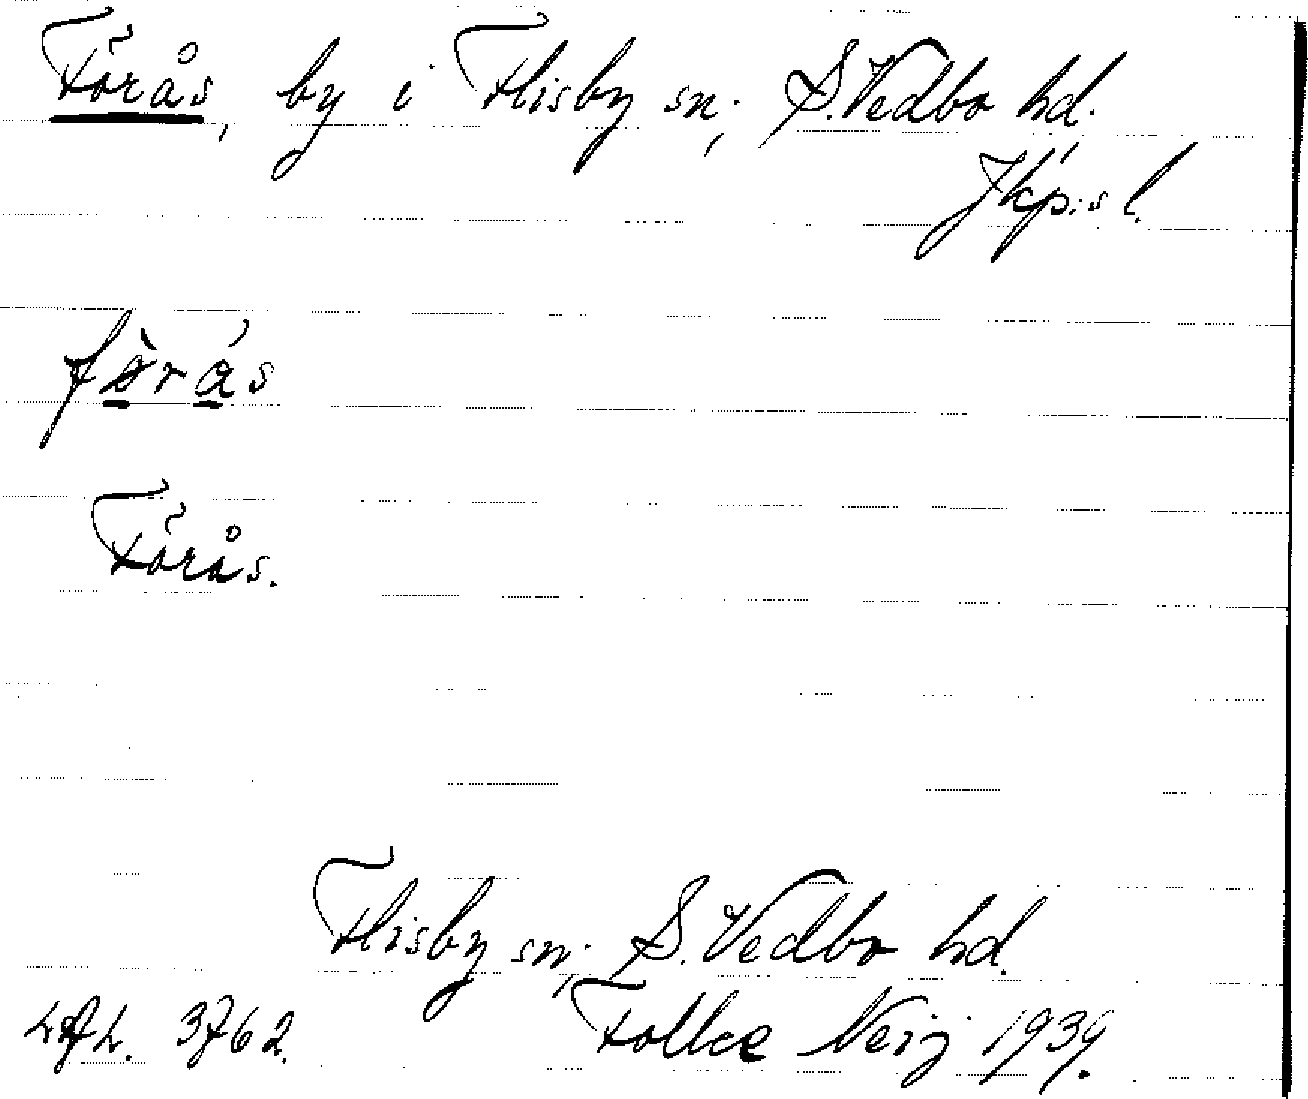 Förås, by i Flisby sn, S. Vedbo hd.
Jkp:s l.
förås
Förås.
Flisby sn, S. Vedbo hd.
3762. Folke Neij 1939.